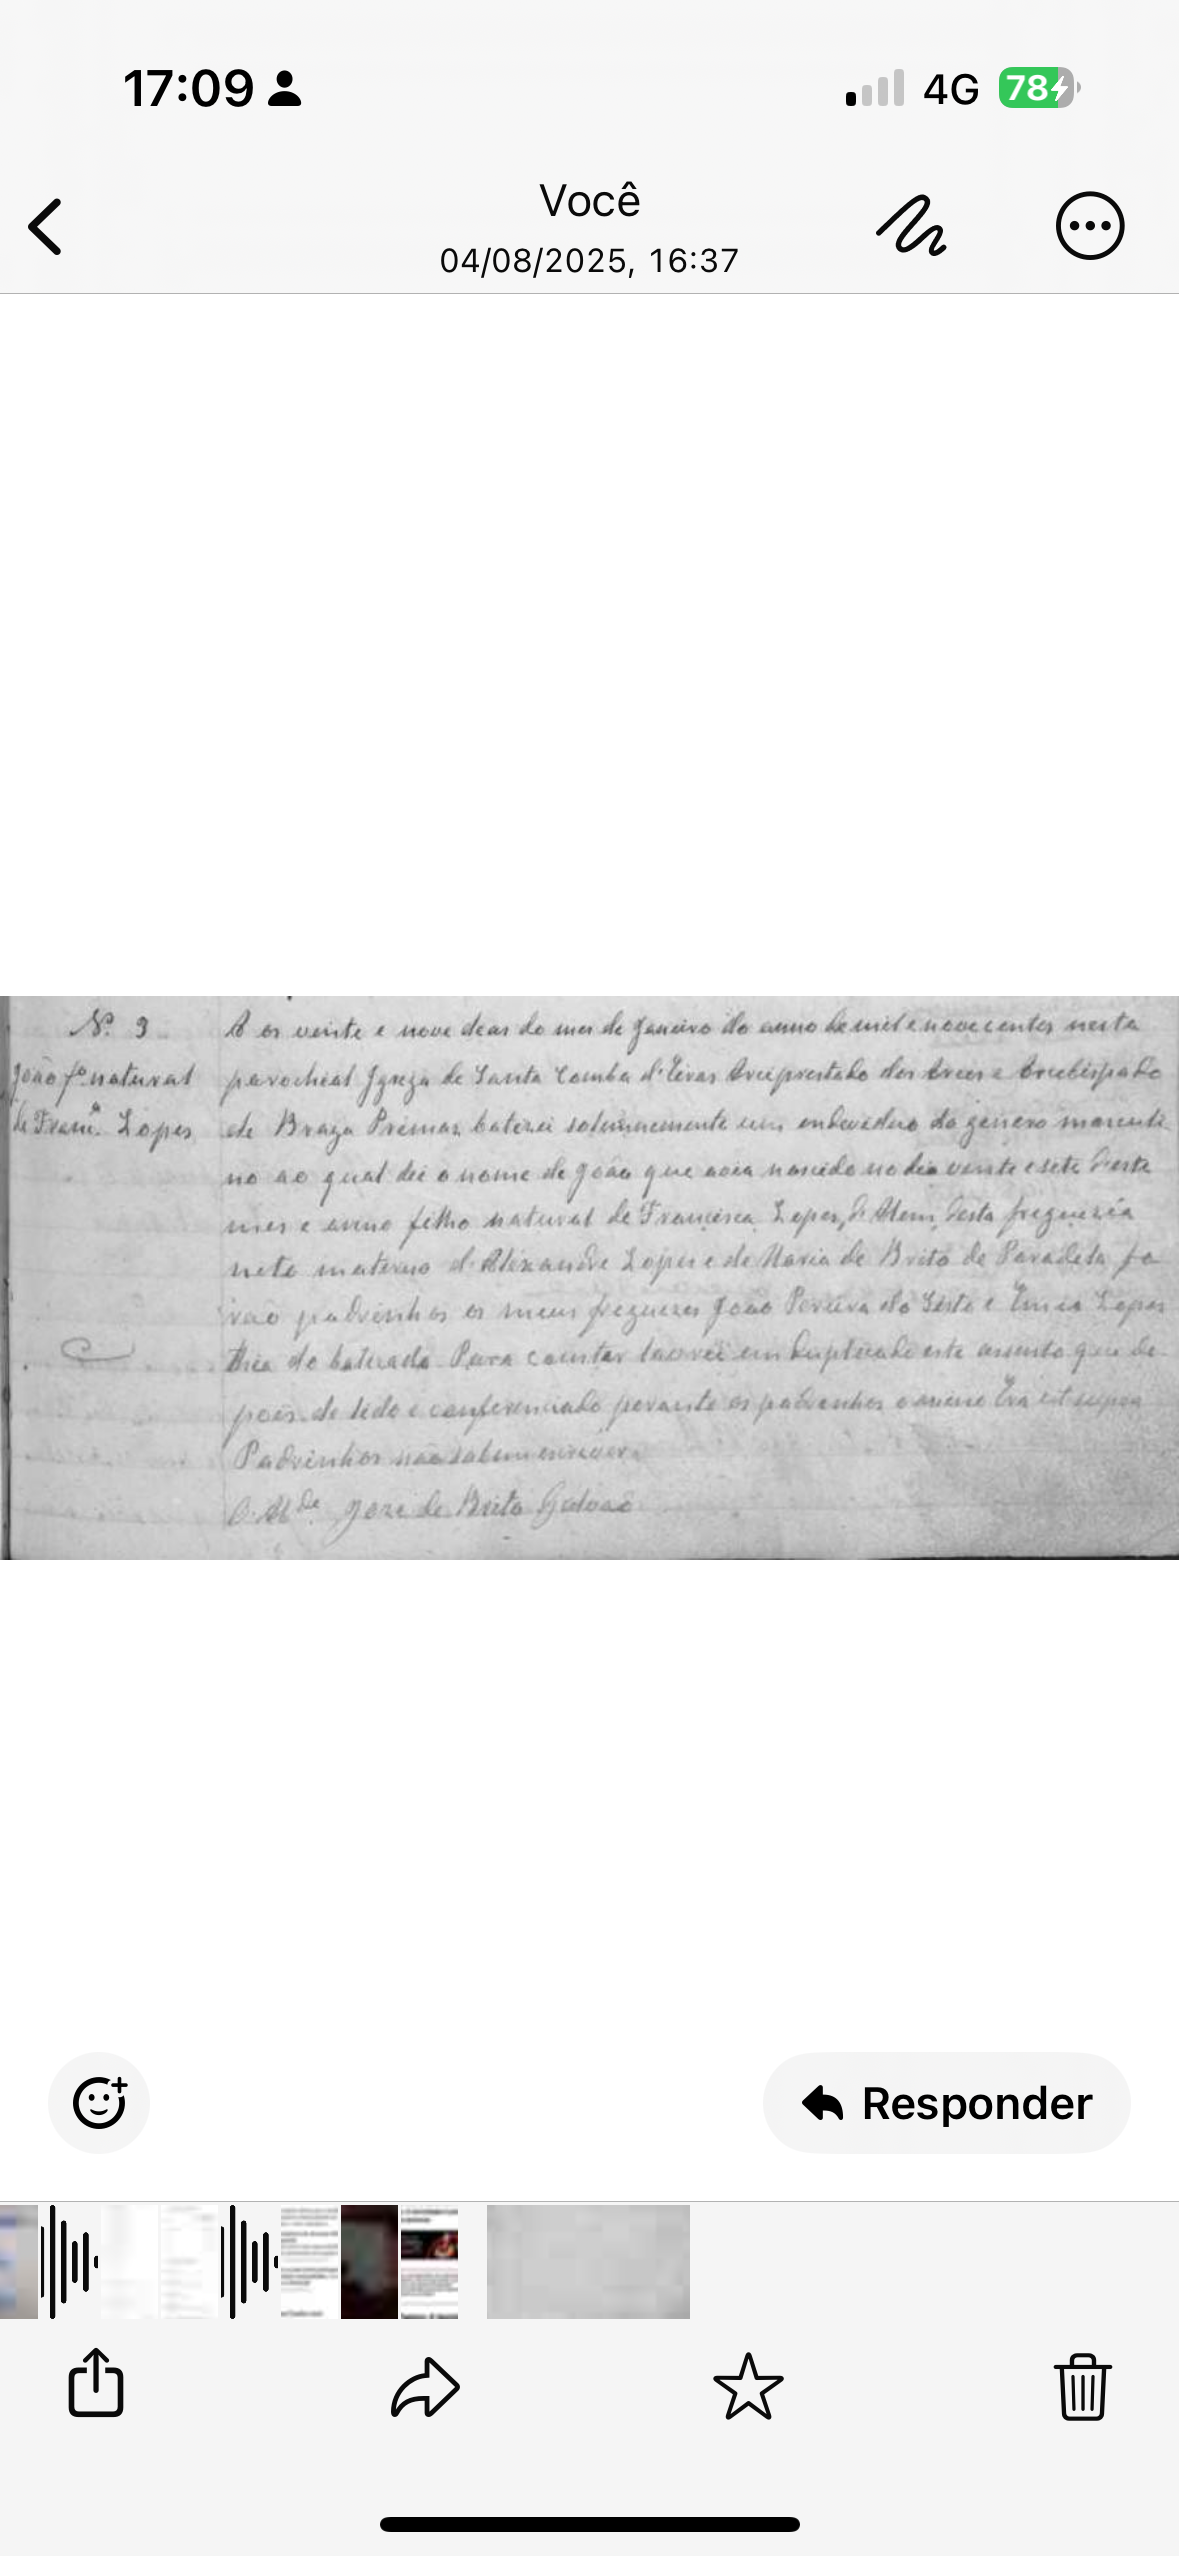 17:09
4G
78
Você
04/08/2025, 16:37
Nº 3
João fº natural
de Franᶜᵃ Lopes
Aos vente e nove deas do mes de Janeiro do anno de mil e novecentos nesta
parochial Igreja de Santa Comba d'Eiras Arciprestado dos Arcos e Arcebispado
de Braga Primaz baterei solemnemente um endeveduo do genero mascule
no ao qual dei o nome de João que avia nascido no dia vente e sete deste
mes e anno filho natural de Francisca Lopes, de Alem, desta freguezia
neto materno d'Alexandre Lopes e de Maria de Brito de Paradela fo
rão padrinhos os meus freguezes João Pereira do e Lopes
thia do baterado Para constar lavrei em duplicado este assento que de
pois de lido e conferenciado perante os padrenhos o Era ut supra
Padrinhos não sabem escrever.
O Abᵈᵉ Joze de Brito Galvão
Responder